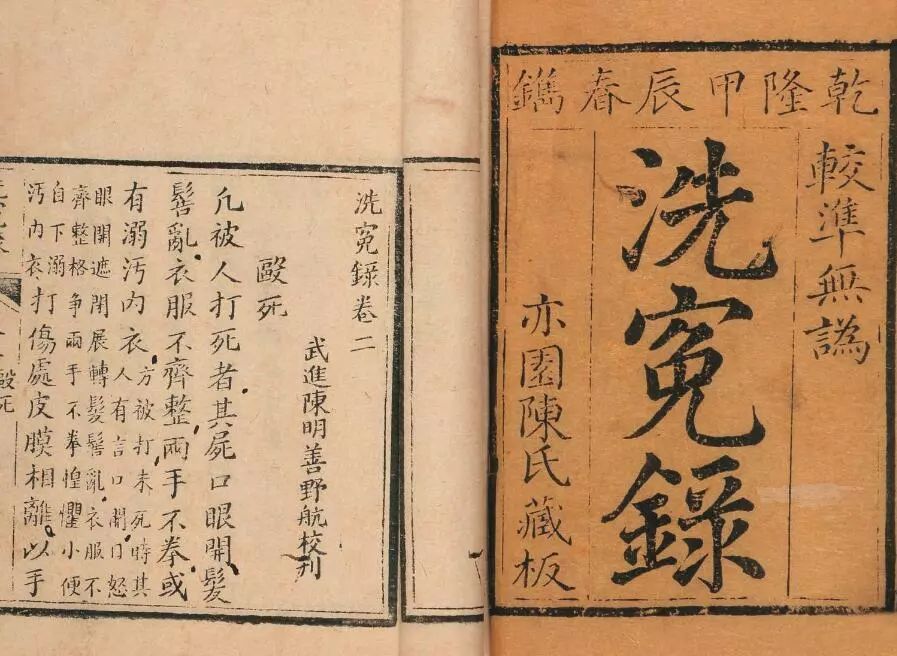 乾隆甲辰春鐫
較準無譌
洗寃錄
亦園陳氏藏板
洗寃錄卷二
武進陳明善野航校刊
毆死
凡被人打死者其屍口眼開髮
髻亂衣服不齊整兩手不拳或
有溺汚内衣方被打未死時其
人有言口開目怒
眼開遮閉展轉髮髻亂衣服不
齊整格爭兩手不拳惶懼小便
自下溺
汚内衣打傷處皮膜相離以手
毆死